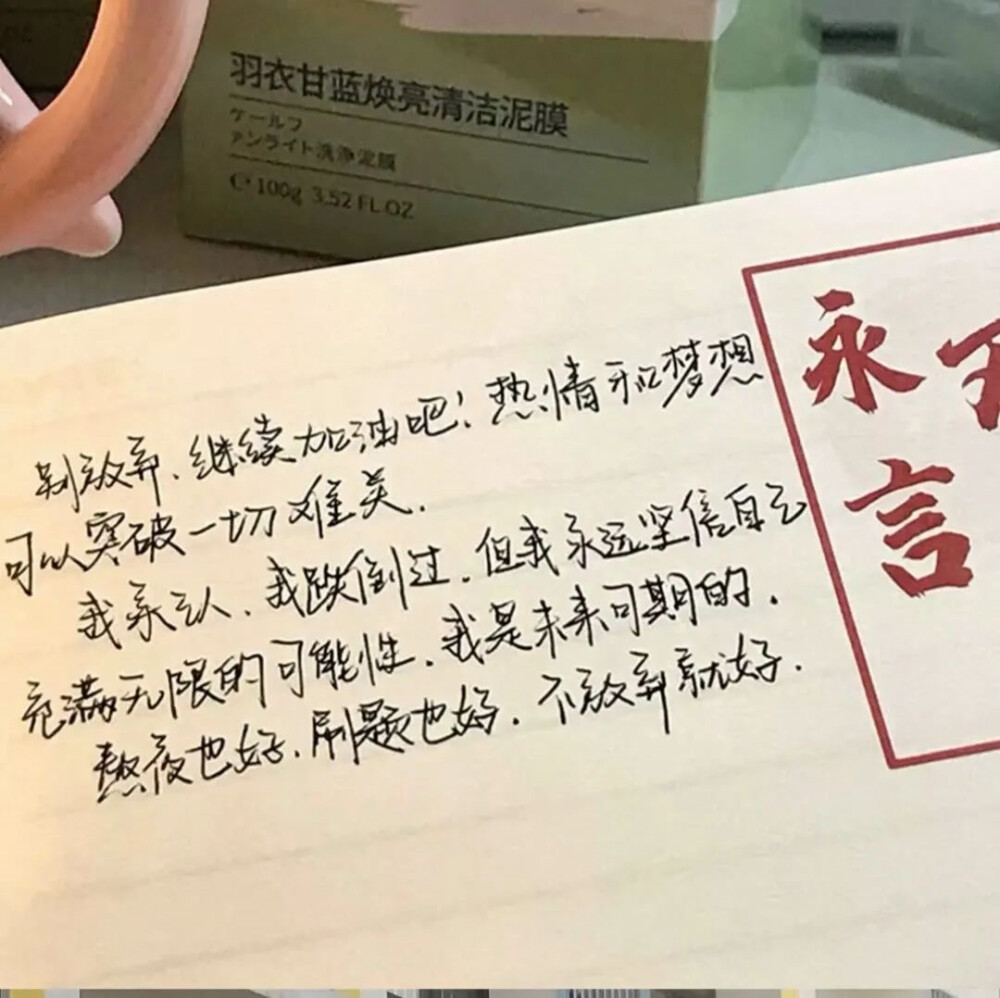 羽衣甘蓝焕亮清洁泥膜
ケールフ
アンライト洗浄泥膜
100g 3.52 FL.OZ
别放弃、继续加油吧！热情和梦想
可以突破一切难关.
我承认、我跌倒过.但我永远坚信自己
充满无限的可能性.我是未来可期的.
熬夜也好.刷题也好.不放弃就好.
永
言